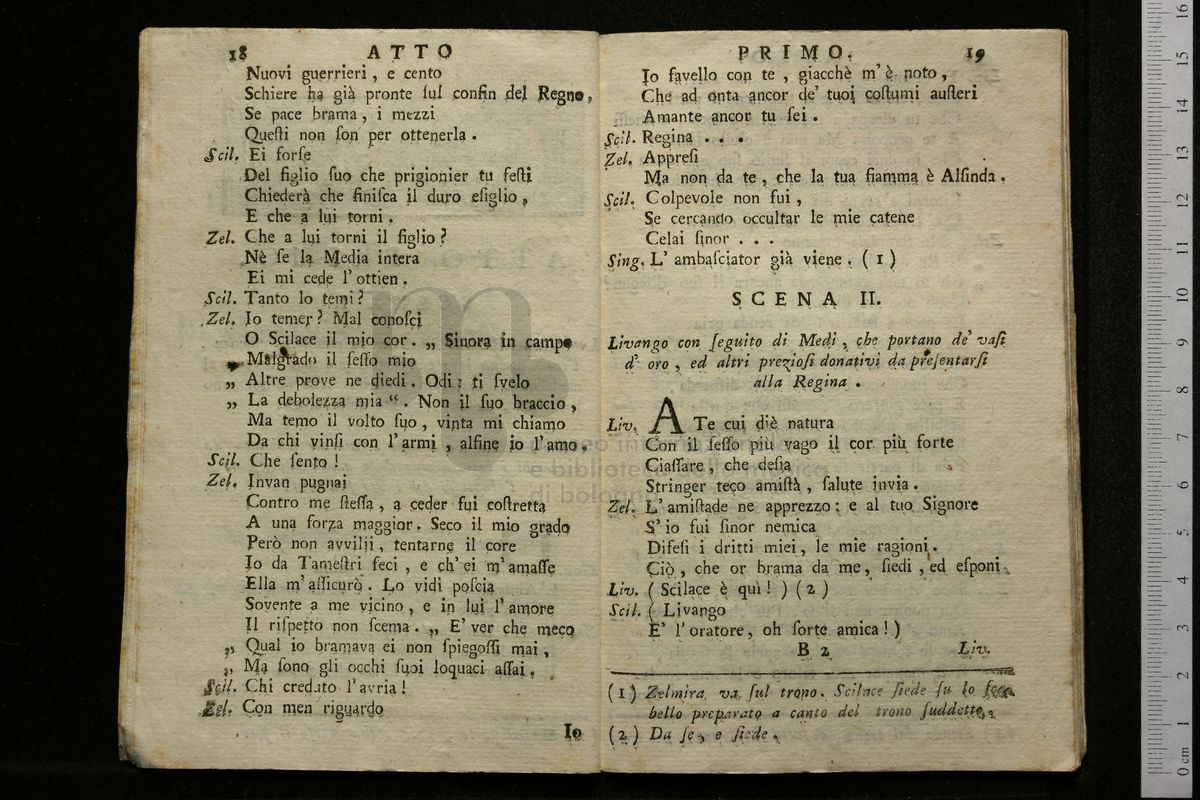 18 ATTO
Nuovi guerrieri, e cento
Schiere ha già pronte ſul confin del Regno,
Se pace brama, i mezzi
Queſti non ſon per ottenerla.
Scil. Ei forſe
Del figlio ſuo che prigionier tu feſti
Chiederà che finiſca il duro eſiglio,
E che a lui torni.
Zel. Che a lui torni il figlio?
Nè ſe la Media intera
Ei mi cede l'ottien.
Scil. Tanto lo temi?
Zel. Io temer? Mal conoſci
O Scilace il mio cor. „ Sinora in campo
„ Malgrado il ſeſſo mio
„ Altre prove ne diedi. Odi: ti ſvelo
„ La debolezza mia “. Non il ſuo braccio,
Ma temo il volto ſuo, vinta mi chiamo
Da chi vinſi con l'armi, alfine io l'amo.
Scil. Che ſento!
Zel. Invan pugnai
Contro me ſteſſa, a ceder fui coſtretta
A una forza maggior. Seco il mio grado
Però non avvilii, tentarne il core
Io da Tameſtri feci, e ch'ei m'amaſſe
Ella m'aſſicurò. Lo vidi poſcia
Sovente a me vicino, e in lui l'amore
Il riſpetto non ſcema. „ E' ver che meco
„ Qual io bramava ei non ſpiegoſſi mai,
„ Ma ſono gli occhi ſuoi loquaci aſſai.
Scil. Chi creduto l'avria!
Zel. Con men riguardo
Io
PRIMO. 19
Io favello con te, giacchè m'è noto,
Che ad onta ancor de' tuoi coſtumi auſteri
Amante ancor tu ſei.
Scil. Regina . . .
Zel. Appreſi
Ma non da te, che la tua fiamma è Alſinda.
Scil. Colpevole non fui,
Se cercando occultar le mie catene
Celai ſinor . . .
Sing. L'ambaſciator già viene. (1)
SCENA II.
Livango con ſeguito di Medi, che portano de' vaſi
d'oro, ed altri prezioſi donativi da preſentarſi
alla Regina.
Liv. A Te cui diè natura
Con il ſeſſo più vago il cor più forte
Ciaſſare, che deſia
Stringer teco amiſtà, ſalute invia.
Zel. L'amiſtade ne apprezzo: e al tuo Signore
S'io fui ſinor nemica
Difeſi i dritti miei, le mie ragioni.
Ciò, che or brama da me, ſiedi, ed eſponi.
Liv. (Scilace è quì!) (2)
Scil. (Livango
E' l'oratore, oh ſorte amica!)
B 2 Liv.
(1) Zelmira va ſul trono. Scilace ſiede ſu lo
bello preparato a canto del trono ſuddetto.
(2) Da ſe, e ſiede.
museo internazionale
e biblioteca della musica
di bologna
0 cm 1 2 3 4 5 6 7 8 9 10 11 12 13 14 15 16